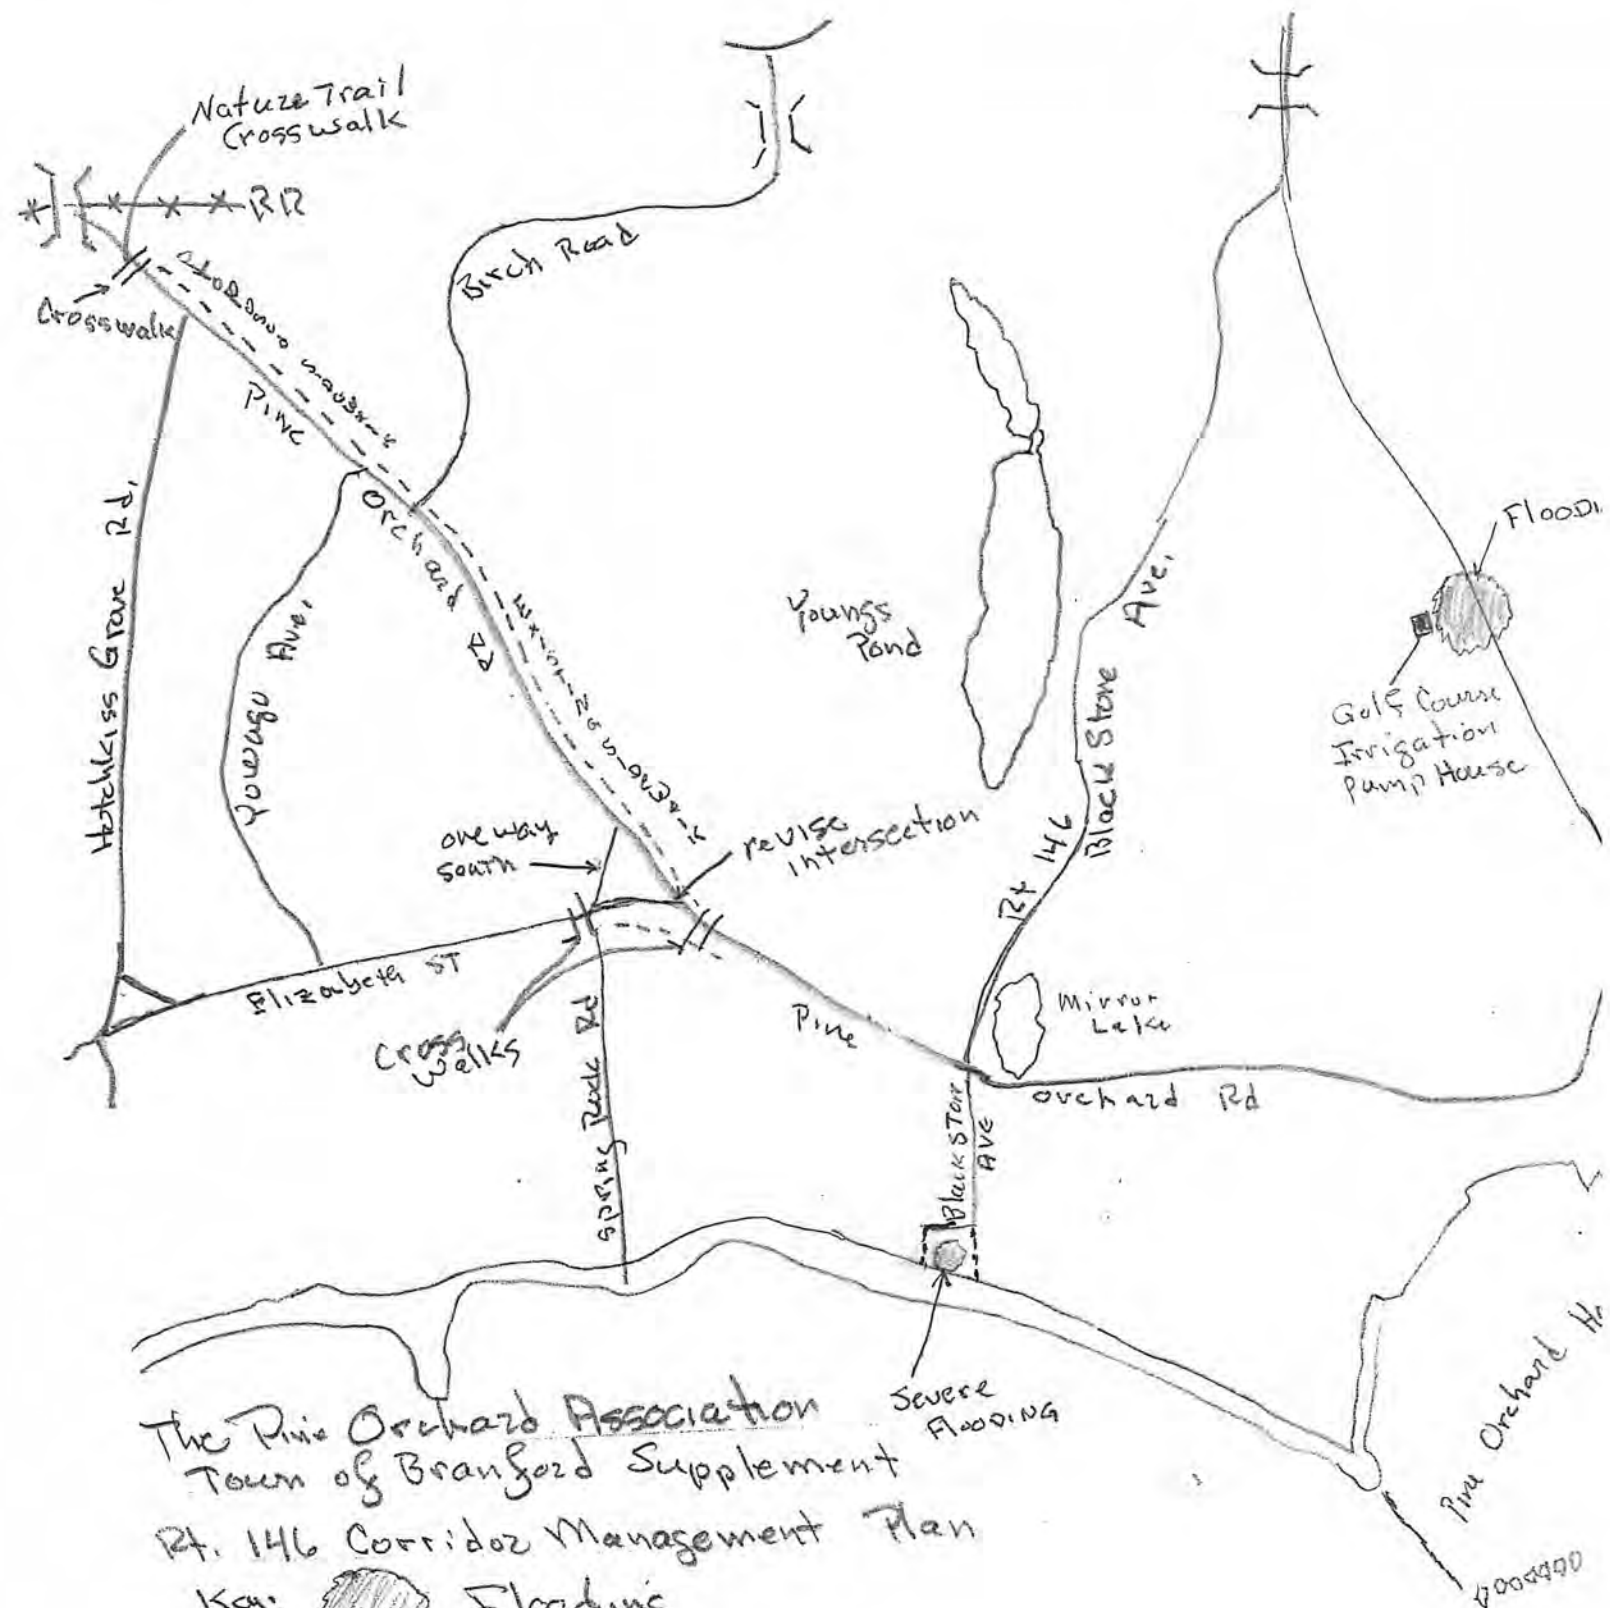 Nature Trail
Crosswalk
RR
Crosswalk
Proposed Sidewalk
Birch Road
Pine
Orchard
Rd
Hotchkiss Grove Rd.
Yowago Ave.
Existing Sidewalk
Youngs
Pond
Floodi
Golf Course
Irrigation
Pump House
Rt 146
Black Stone
Ave.
one way
south
revise
intersection
Elizabeth ST
Cross
walks
Spring Rock Rd
Pine
Mirror
Lake
orchard Rd
Black STone
AVE
Severe
FloodinG
Pine Orchard
The Pine Orchard Association
Town of Branford Supplement
Rt. 146 Corridor Management Plan
Key:
Flooding